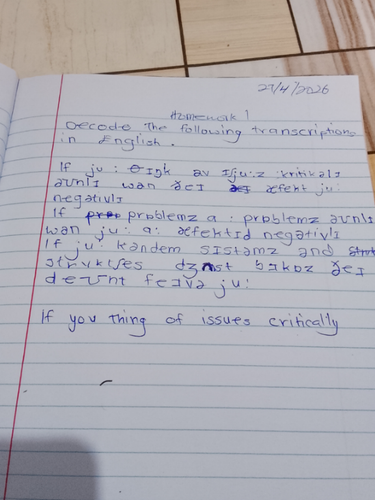 27/4/2026
Homewak 1
Decode The following transcriptions
in English.
If ju: θɪŋk av ɪʃju:z krɪtɪkalɪ
əʊnlɪ wan ðeɪ əfekt ju:
negətɪvlɪ
If problemz a: problemz əʊnlɪ
wan ju: a: əfektɪd negətɪvlɪ
If ju: kandem sɪstəmz and
strʌktʃes dʒʌst bɪkɒz ðeɪ
deʊnt feɪvə ju:
If you thing of issues critically